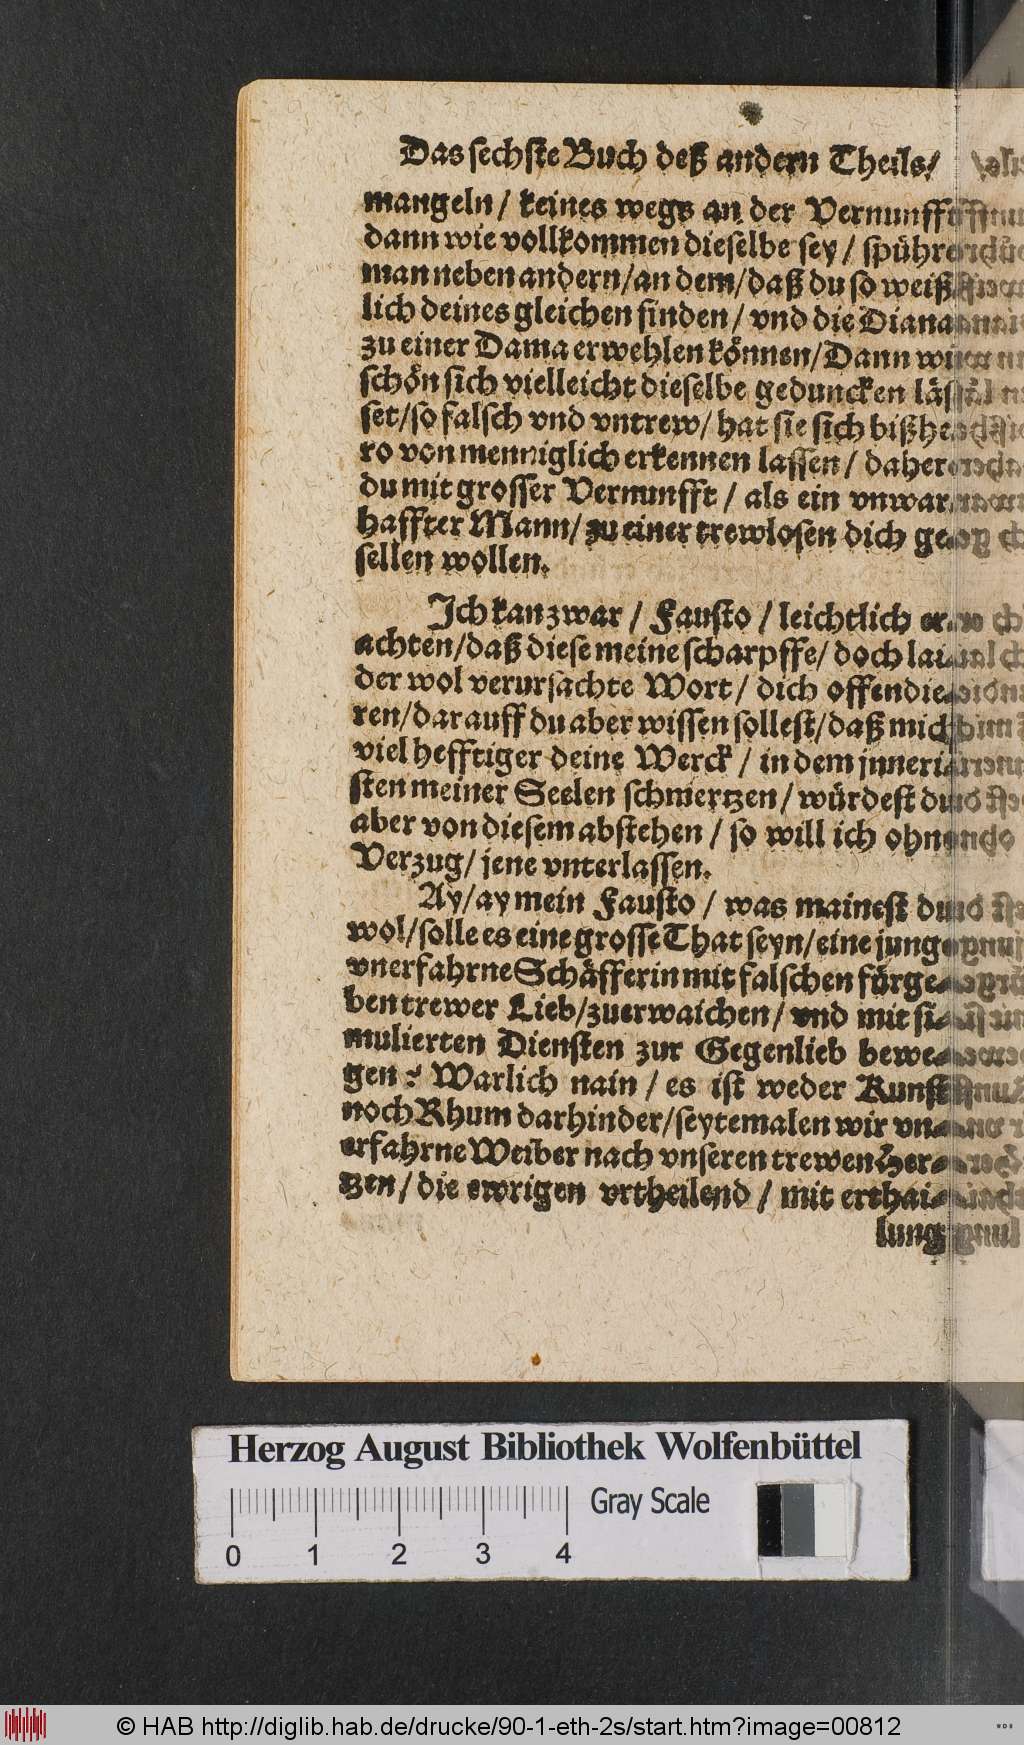 Das sechste Buch deß andern Theils/
mangeln / keines wegs an der Vernunfft
dann wie vollkommen dieselbe sey / spühre
man neben andern/an dem/daß du so weiß
lich deines gleichen finden / vnd die Diana
zu einer Dama erwehlen können/Dann wie
schön sich vielleicht dieselbe geduncken läs
set/so falsch vnd vntrew/ hat sie sich bißhe
ro von menniglich erkennen lassen / daher
du mit grosser Vernunfft / als ein vnwar
haffter Mann/ zu einer trewlosen dich ge
sellen wollen.
Ich kan zwar / Fausto / leichtlich er
achten/daß diese meine scharpffe/ doch lai
der wol verursachte Wort / dich offendie
ren/darauff du aber wissen sollest/daß mich
viel hefftiger deine Werck / in dem jnneri
sten meiner Seelen schmertzen / würdest du
aber von diesem abstehen / so will ich ohn
Verzug/ jene vnterlassen.
Ay/ay mein Fausto / was mainest du
wol/solle es eine grosse That seyn/eine jung
vnerfahrne Schäfferin mit falschen fürge
ben trewer Lieb/zuerwaichen/ vnd mit si
mulierten Diensten zur Gegenlieb bewe
gen? Warlich nain / es ist weder Kunst
noch Rhum darhinder/seytemalen wir vn
erfahrne Weiber nach vnseren trewen Her
tzen / die ewrigen vrtheilend / mit erthai
lung
Herzog August Bibliothek Wolfenbüttel
Gray Scale
0 1 2 3 4
© HAB http://diglib.hab.de/drucke/90-1-eth-2s/start.htm?image=00812